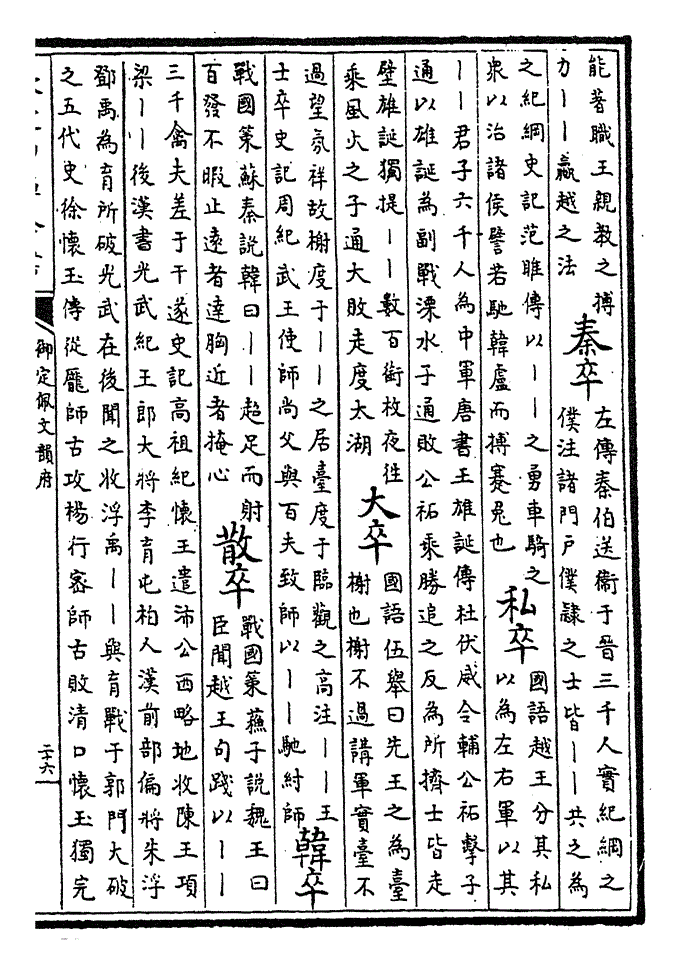 能著職王親教之搏
力丨丨嬴越之法
秦卒
左傳秦伯送衛于晉三千人實紀綱之
僕注諸門户僕隸之士皆丨丨共之為
之紀綱史記范雎傳以丨丨之勇車騎之
衆以治諸侯譬若馳韓盧而搏蹇兔也
私卒
國語越王分其私
以為左右軍以其
丨丨君子六千人為中軍唐書王雄誕傳杜伏威令輔公祏擊子
通以雄誕為副戰溧水子通敗公祏乘勝追之反為所擠士皆走
壁雄誕獨提丨丨數百銜枚夜徃
乘風火之子通大敗走度太湖
大卒
國語伍舉曰先王之為臺
榭也榭不過講軍實臺不
過望氛祥故榭度于丨丨之居臺度于臨觀之高注丨丨王
士卒史記周紀武王使師尚父與百夫致師以丨丨馳紂師
韓卒
戰國策蘇秦説韓曰丨丨超足而射
百發不暇止遠者達胸近者掩心
散卒
戰國策蘇子説魏王曰
臣聞越王句踐以丨丨
三千禽夫差于干遂史記高祖紀懷王遣沛公西略地收陳王項
梁丨丨後漢書光武紀王郎大將李育屯柏人漢前部偏將朱浮
鄧禹為育所破光武在後聞之收浮禹丨丨與育戰于郭門大破
之五代史徐懷玉傳從龐師古攻楊行密師古敗清口懷玉獨完
御定佩文韻府
二十六